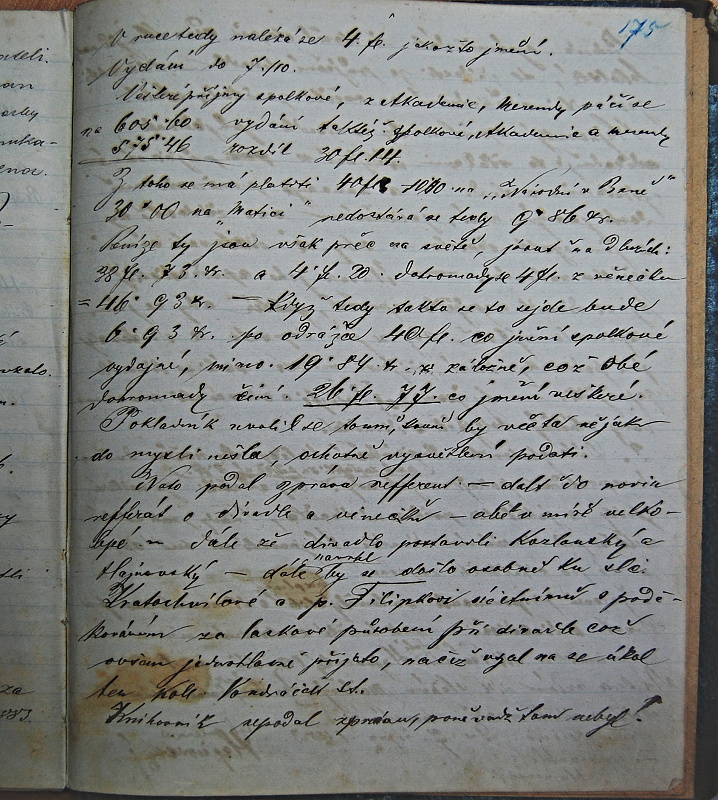 175
V ruce tedy nalézá se 4. fl. jakožto jmění.
Vydání do 7./10.
Veškeré příjmy spolkové, z Akademie, Merendy páčí se
na 605·60 vydání taktéž spolkové, Akademie a merendy
575·46 rozdíl 30 fl. 14.
Z toho se má platiti 40 fl. na „Národní v Brně"
30·00 na Matici nedostává se tedy 9·86 kr.
Peníze ty jsou však přec na světě, jsout na dluzích:
38 fl. 73. kr. a 4 fl. 20. dohromady se 4 fl. z věnečku
= 46·93 kr. — Když tedy takto se to sejde bude
6·93 kr. po odrážce 40 fl. co jmění spolkové
vydajné, mimo 19·84 kr. v záložně, což obé
dohromady činí. 26 fl. 77. co jmění veškeré.
Pokladník uvolil se tomu, komu by věta nějak
do mysli nešla, ochotně vysvětlení podati.
Nato podal zprávu refferent — dalt do novin
refferat o divadle a věnečku — obé v míře velko-
lepé — Dále že divadlo postavili Kozlanský a
Hajnovský — dále navrhl by se došlo osobně ku slč.
Kratochvílové a p. Filipkovi účetnímu s podě-
kováním za laskavé působení při divadle což
ovšem jednohlasně přijato, načež vzal na se úkol
ten koll. Vondráček st.
Knihovník nepodal zprávu, poněvadž tam nebyl!